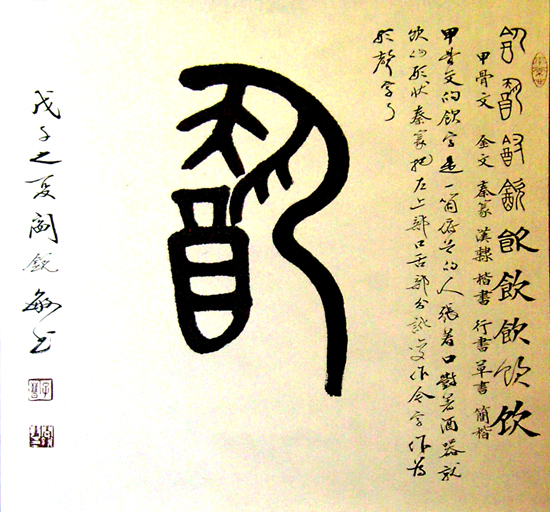 㱃㱃㱃㱃飲飲飲飲饮
甲骨文 金文 秦篆 漢隸 楷書 行書 草書 簡楷
甲骨文的飲字是一個俯首的人張着口對着酒器就
飲的形狀秦篆把左上部口舌部分訛變作今字作為
形聲字了
㱃
戊子之夏閻銳敏書